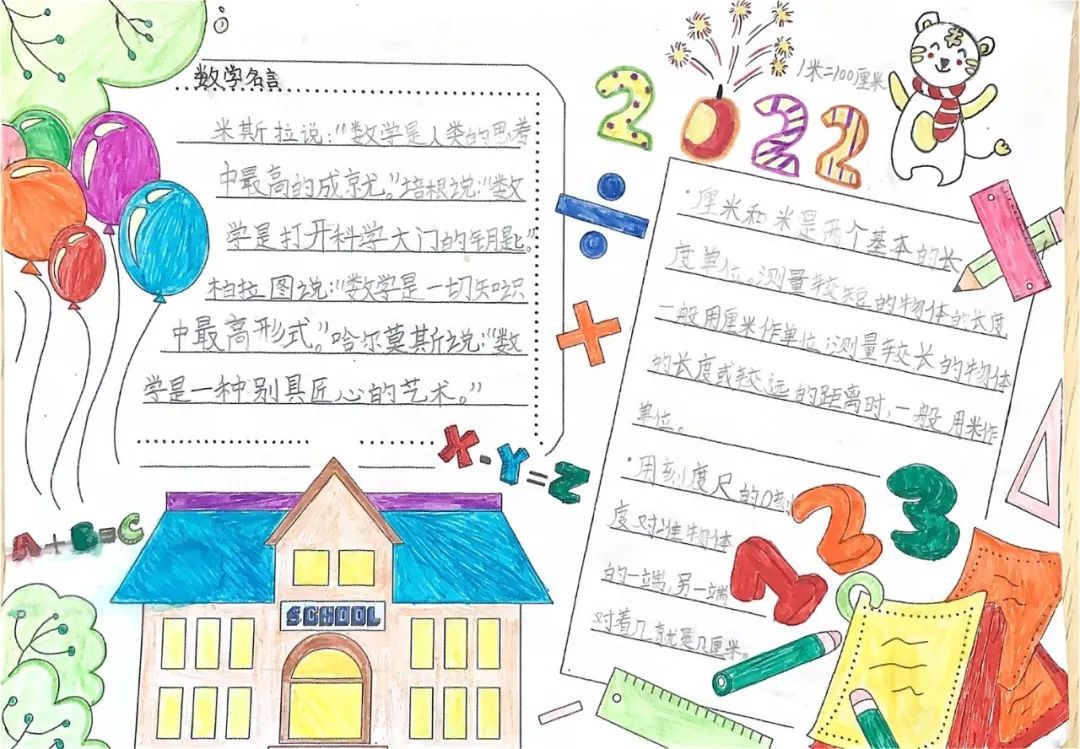 数学名言
米斯拉说：“数学是人类的思考
中最高的成就。”培根说：“数
学是打开科学大门的钥匙。”
柏拉图说：“数学是一切知识
中最高形式。”哈尔莫斯说：“数
学是一种别具匠心的艺术。”
X-Y=Z
A+B=C
SCHOOL
2022
1米=100厘米
·厘米和米是两个基本的长
度单位。测量较短的物体的长度
一般用厘米作单位；测量较长的物体
的长度或较远的距离时，一般用米作
单位。
·用刻度尺的0刻
度对准物体
的一端，另一端
对着几就是几厘米。
123